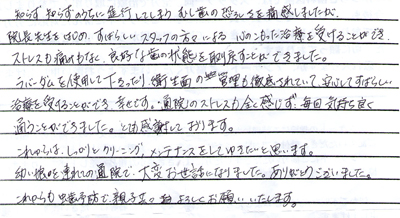 知らず知らずのうちに進行してしまう むし歯の恐ろしさを痛感しましたが、
院長先生をはじめ、すばらしいスタッフの方々による 心のこもった治療を受けることができ、
ストレスも痛みもなく、良好な歯の状態を取り戻すことができました。
ラバーダムを使用して下さったり、衛生面の管理も徹底されていて、安心してすばらしい
治療を受けることができ 幸せです。通院のストレスも全く感じず、毎回気持ち良く
通うことができました。とても感謝しております。
これからは、しっかりとクリーニング、メンテナンスをしてゆきたいと思います。
幼い娘を連れての通院で、大変お世話になりました。ありがとうございました。
これからも虫歯予防で、親子共々 よろしくお願いいたします。